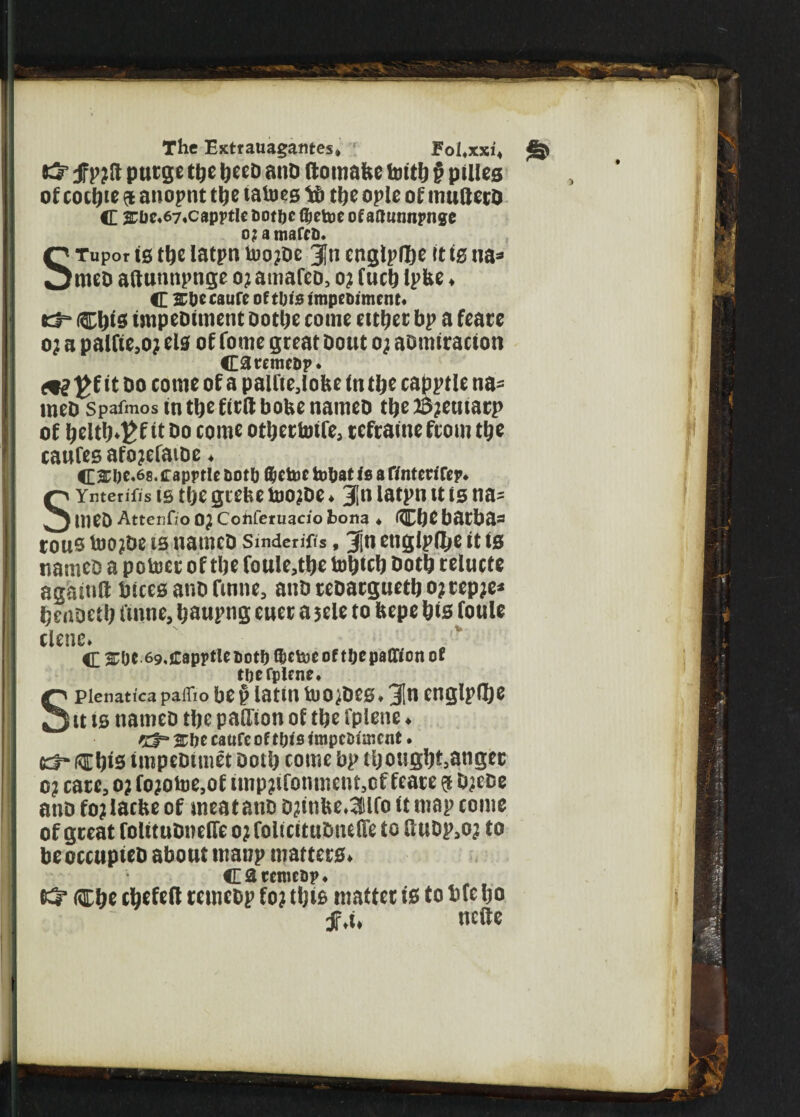 The Extrauagantes. Fol.xxi.
☞ Fyrst purge the heed and stomake with þe pilles
of cochie & anoynt the tawes wt the oyle of musterd
¶ The.67.Capytle dothe shewe of astunnynge
or a mased.
STupor is the latyn worde. In englyshe it is na-
med astunnynge or amased, or such lyke.
¶ The cause of this impediment.
☞ This impediment dothe come either by a feare
or a palsie, or els of some great dout or admiracion
¶ A remedy.
☞ Yf it do come of a palsie, loke in the capytle na-
med Spasmos in the first boke named the Breuiary
of helth. Yf it do come otherwise, refraine from the
causes aforesaide.
¶ The.68.Capytle doth shewe what is a sinterisey.
SYnterisis is the greke worde. In latyn it is na-
med Attensio or Conseruacio bona. The barba-
rous worde is named Sinderisis, In englyshe it is
named a power of the soule, the which doth relucte
against vices and sinne, and redargueth or repre-
hendeth sinne, hauyng euer a zele to kepe his soule
clene.
¶ The.69.Capytle doth shewe of the passion of
the splene.
SPlenatica passio be þe latin wordes. In englyshe
it is named the passion of the splene.
☞ The cause of this impediment.
☞ This impedimēt doth come by thought, anger
or care, or sorowe, of imprisonment, of feare & drede
and for lacke of meat and drinke. Also it may come
of great solitudnesse or solicitudnesse to study, or to
be occupied about many matters.
¶ A remedy.
☞ The chefest remedy for this matter is to vse ho
F.i. neste